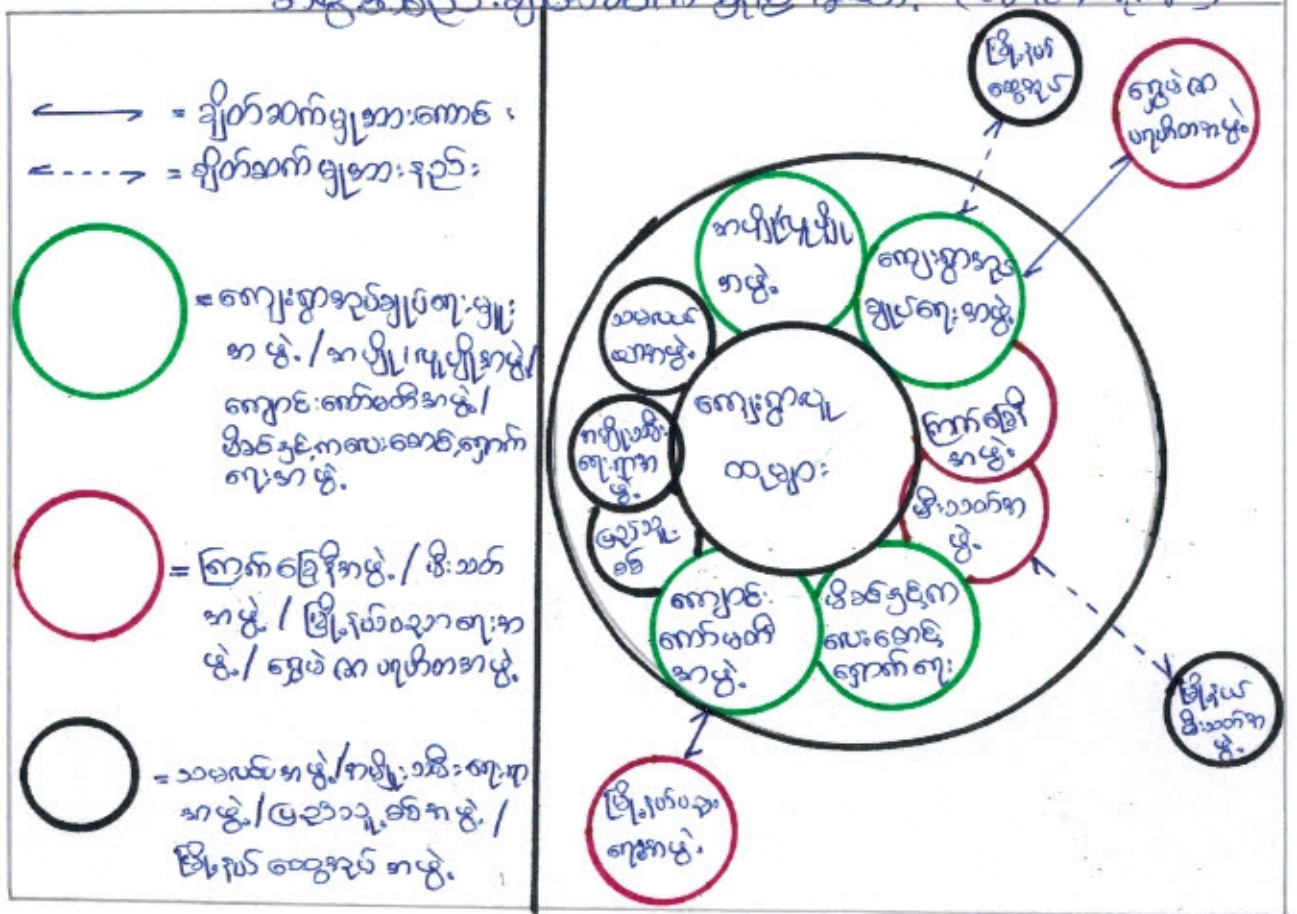 = ချိတ်ဆက်မှုအားကောင်း
= ချိတ်ဆက်မှုအားနည်း
= ကျေးရွာအုပ်ချုပ်ရေးမှူး
အဖွဲ့/အပျို/လူပျိုအဖွဲ့/
ကျောင်းကော်မတီအဖွဲ့/
မိခင်နှင့်ကလေးစောင့်ရှောက်
ရေးအဖွဲ့
= ကြက်ခြေနီအဖွဲ့/မီးသတ်
အဖွဲ့/မြို့နယ်ပညာရေးအ
ဖွဲ့/ရွှေမဲဇာ ပရဟိတအဖွဲ့
= သမလယ်အဖွဲ့/အမျိုးသမီးရေးရာ
အဖွဲ့/ပြည်သူ့စစ်အဖွဲ့/
မြို့နယ်ထွေအုပ် အဖွဲ့
မြို့နယ်
ထွေအုပ်
ရွှေမဲဇာ
ပရဟိတအဖွဲ့
အပျို/လူပျို
အဖွဲ့
ကျေးရွာအုပ်
ချုပ်ရေးအဖွဲ့
ကျေးရွာလူ
ထုများ
ကြက်ခြေနီ
အဖွဲ့
အမျိုးသမီး
ရေးရာအ
ဖွဲ့
မီးသတ်အ
ဖွဲ့
ပြည်သူ့
စစ်
ကျောင်း
ကော်မတီ
အဖွဲ့
မိခင်နှင့်က
လေးစောင့်
ရှောက်ရေး
မြို့နယ်
မီးသတ်အ
ဖွဲ့
မြို့နယ်ပညာ
ရေးအဖွဲ့